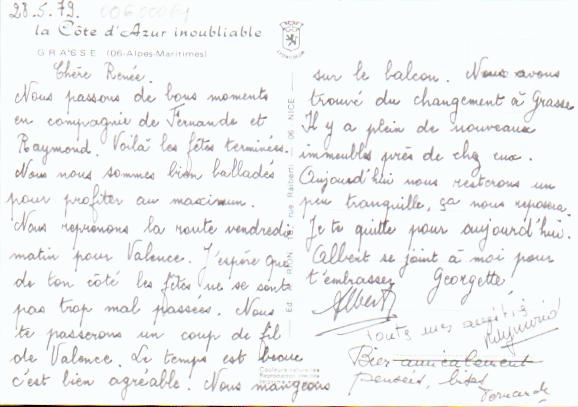 28.5.79.
la Côte d'Azur inoubliable
GRASSE (06-Alpes-Maritimes)
Chère Renée.
Nous passons de bons moments
en compagnie de Fernande et
Raymond. Voilà les fêtes terminées.
Nous nous sommes bien balladés
pour profiter au maximum.
Nous reprenons la route vendredi
matin pour Valence. J'espère que
de ton côté les fêtes ne se sont
pas trop mal passées. Nous
te passerons un coup de fil
de Valence. Le temps est beau
c'est bien agréable. Nous mangeons
sur le balcon. Nous avons
trouvé du changement à Grasse
Il y a plein de nouveaux
immeubles près de chez eux.
Aujourd'hui nous resterons un
peu tranquille, ça nous reposera.
Je te quitte pour aujourd'hui.
Albert se joint à moi pour
t'embrasser Georgette
Albert
Toutes mes amitiés
Bien amicalement
pensées, bises
Fernande
rue Raiberti — 06 NICE
Couleurs naturelles